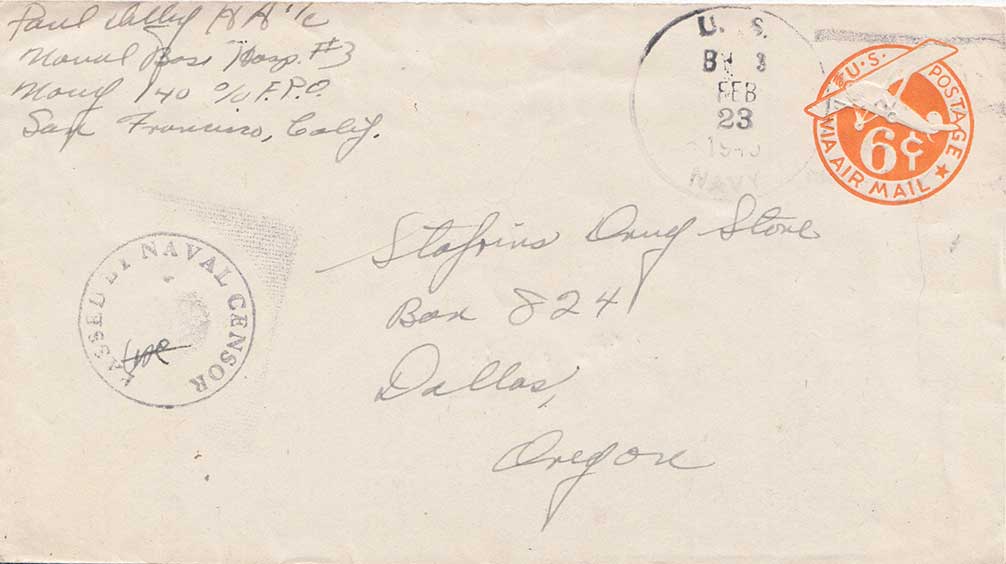 Paul HA 1/c
Naval Base Hosp. #3
Navy 140 c/o F.P.O.
San Francisco, Calif.
U. S.
FEB
23
NAVY
U.S. POSTAGE
VIA AIR MAIL
6¢
PASSED BY NAVAL CENSOR
Stafrins Drug Store
Box 824
Dallas,
Oregon